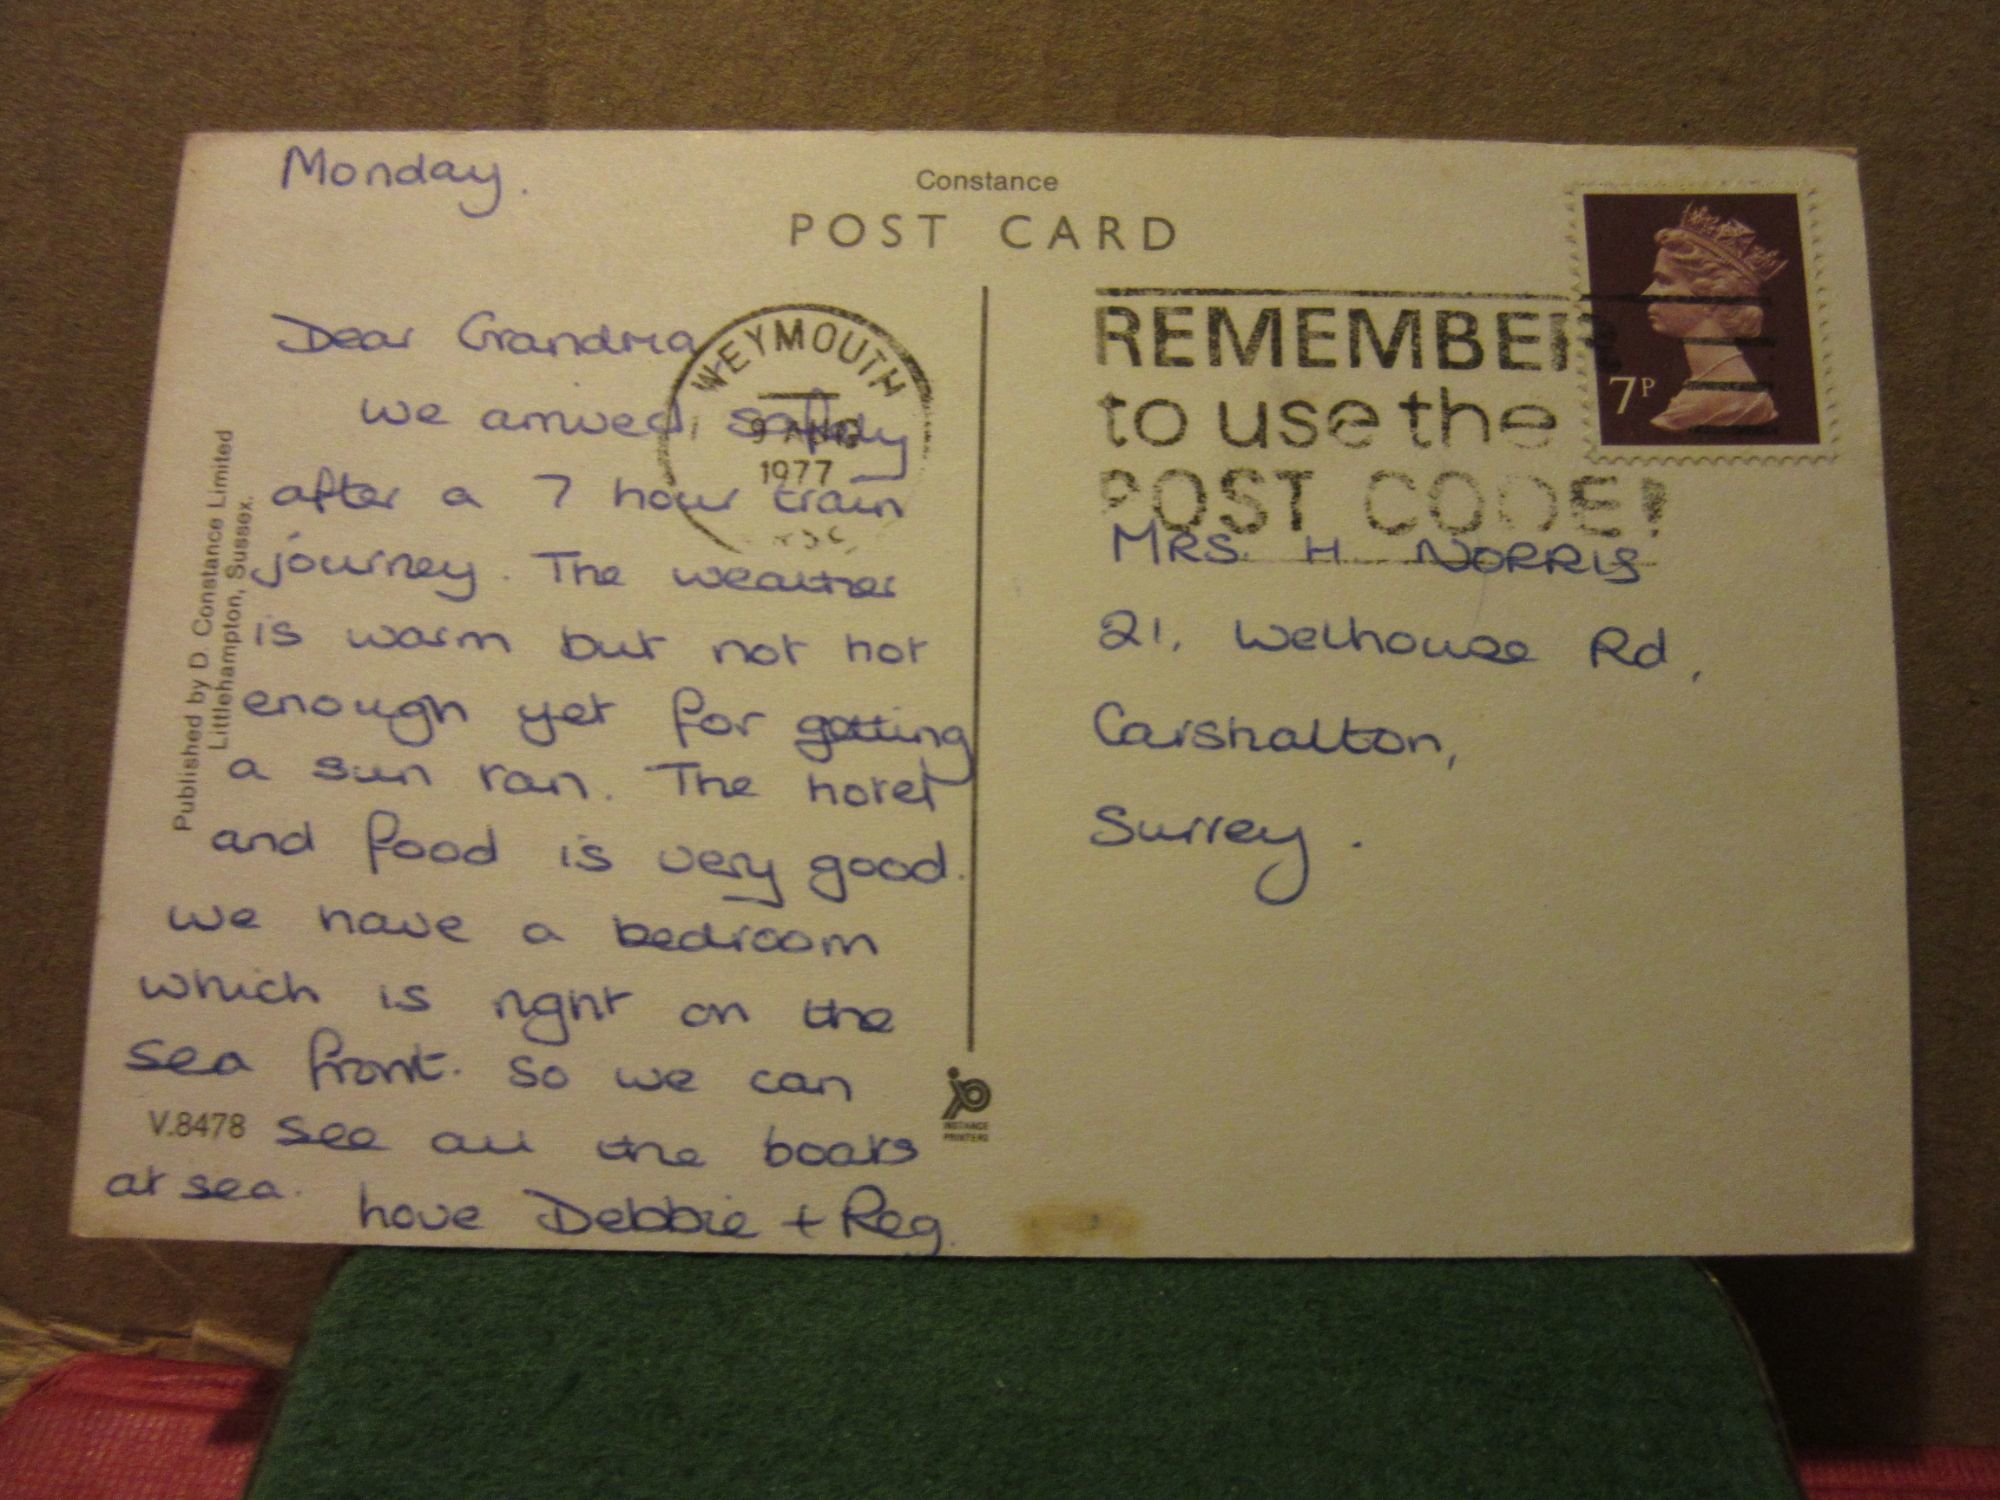 Monday.
Constance
POST CARD
Dear Grandma
we arrived safely
after a 7 hour train
journey. The weather
is warm but not hot
enough yet for getting
a sun tan. The hotel
and food is very good.
we have a bedroom
which is right on the
sea front. So we can
see all the boats
at sea.
love Debbie + Reg.
Published by D. Constance Limited
Littlehampton, Sussex.
V.8478
WEYMOUTH
1977
REMEMBER
to use the
POST CODE!
7P
MRS. H. NORRIS
21, Welhouse Rd,
Carshalton,
Surrey.
INSTANCE
PRINTERS